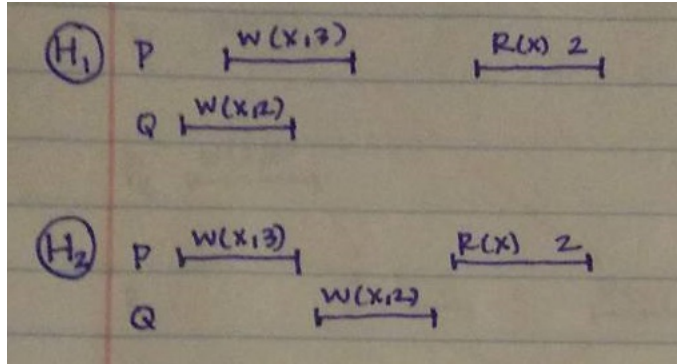 H1 P W(x,3) R(x) 2
Q W(x,2)
H2 P W(x,3) R(x) 2
Q W(x,2)